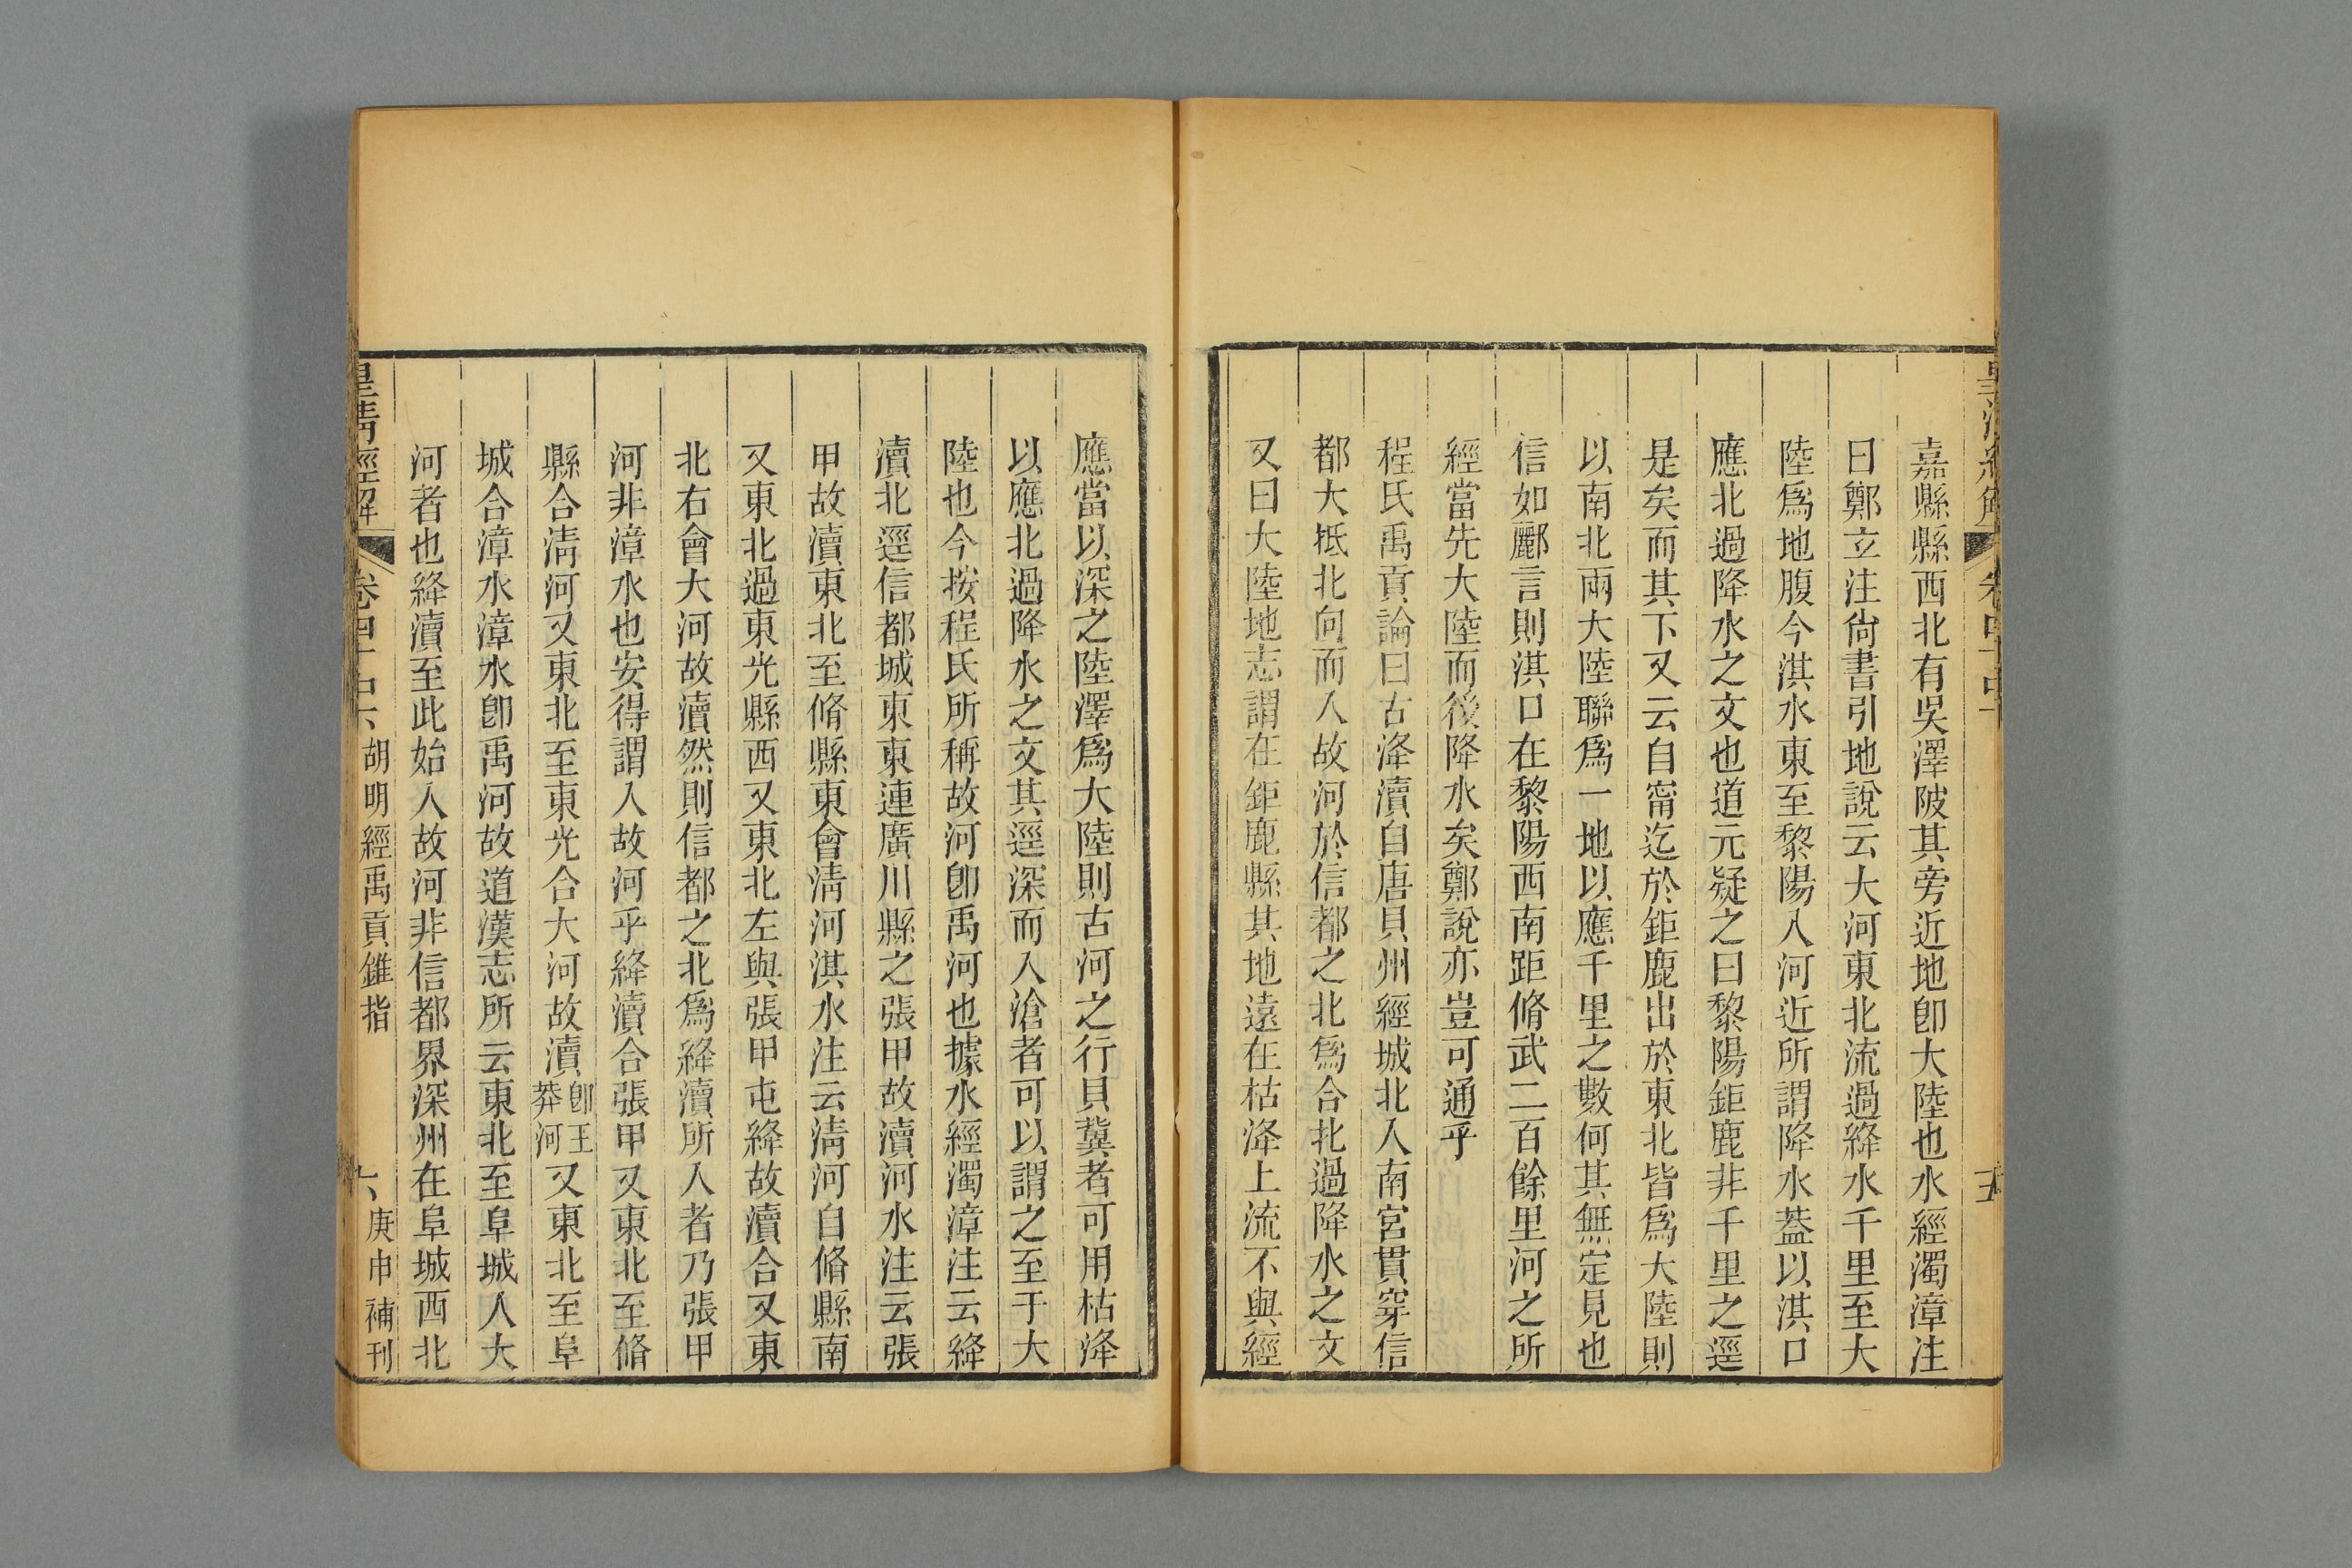 嘉縣縣西北有吳澤陂其旁近地卽大陸也水經濁漳注
曰鄭玄注尙書引地說云大河東北流過絳水千里至大
陸爲地腹今淇水東至黎陽入河近所謂降水葢以淇口
應北過降水之文也道元疑之曰黎陽鉅鹿非千里之逕
是矣而其下又云自甯迄於鉅鹿出於東北皆爲大陸則
以南北兩大陸聯爲一地以應千里之數何其無定見也
信如酈言則淇口在黎陽西南距脩武二百餘里河之所
經當先大陸而後降水矣鄭說亦豈可通乎
程氏禹貢論曰古洚瀆自唐貝州經城北入南宮貫穿信
都大抵北向而入故河於信都之北爲合北過降水之文
又曰大陸地志謂在鉅鹿縣其地遠在枯洚上流不與經
應當以深之陸澤爲大陸則古河之行貝冀者可用枯洚
以應北過降水之文其逕深而入滄者可以謂之至于大
陸也今按程氏所稱故河卽禹河也據水經濁漳注云絳
瀆北逕信都城東東連廣川縣之張甲故瀆河水注云張
甲故瀆東北至脩縣東會淸河淇水注云淸河自脩縣南
又東北過東光縣西又東北左與張甲屯絳故瀆合又東
北右會大河故瀆然則信都之北爲絳瀆所入者乃張甲
河非漳水也安得謂入故河乎絳瀆合張甲又東北至脩
縣合淸河又東北至東光合大河故瀆卽王莽河又東北至阜
城合漳水漳水卽禹河故道漢志所云東北至阜城入大
河者也絳瀆至此始入故河非信都界深州在阜城西北
皇淸經解 卷四十中下 胡明經禹貢錐指 六 庚申補刊